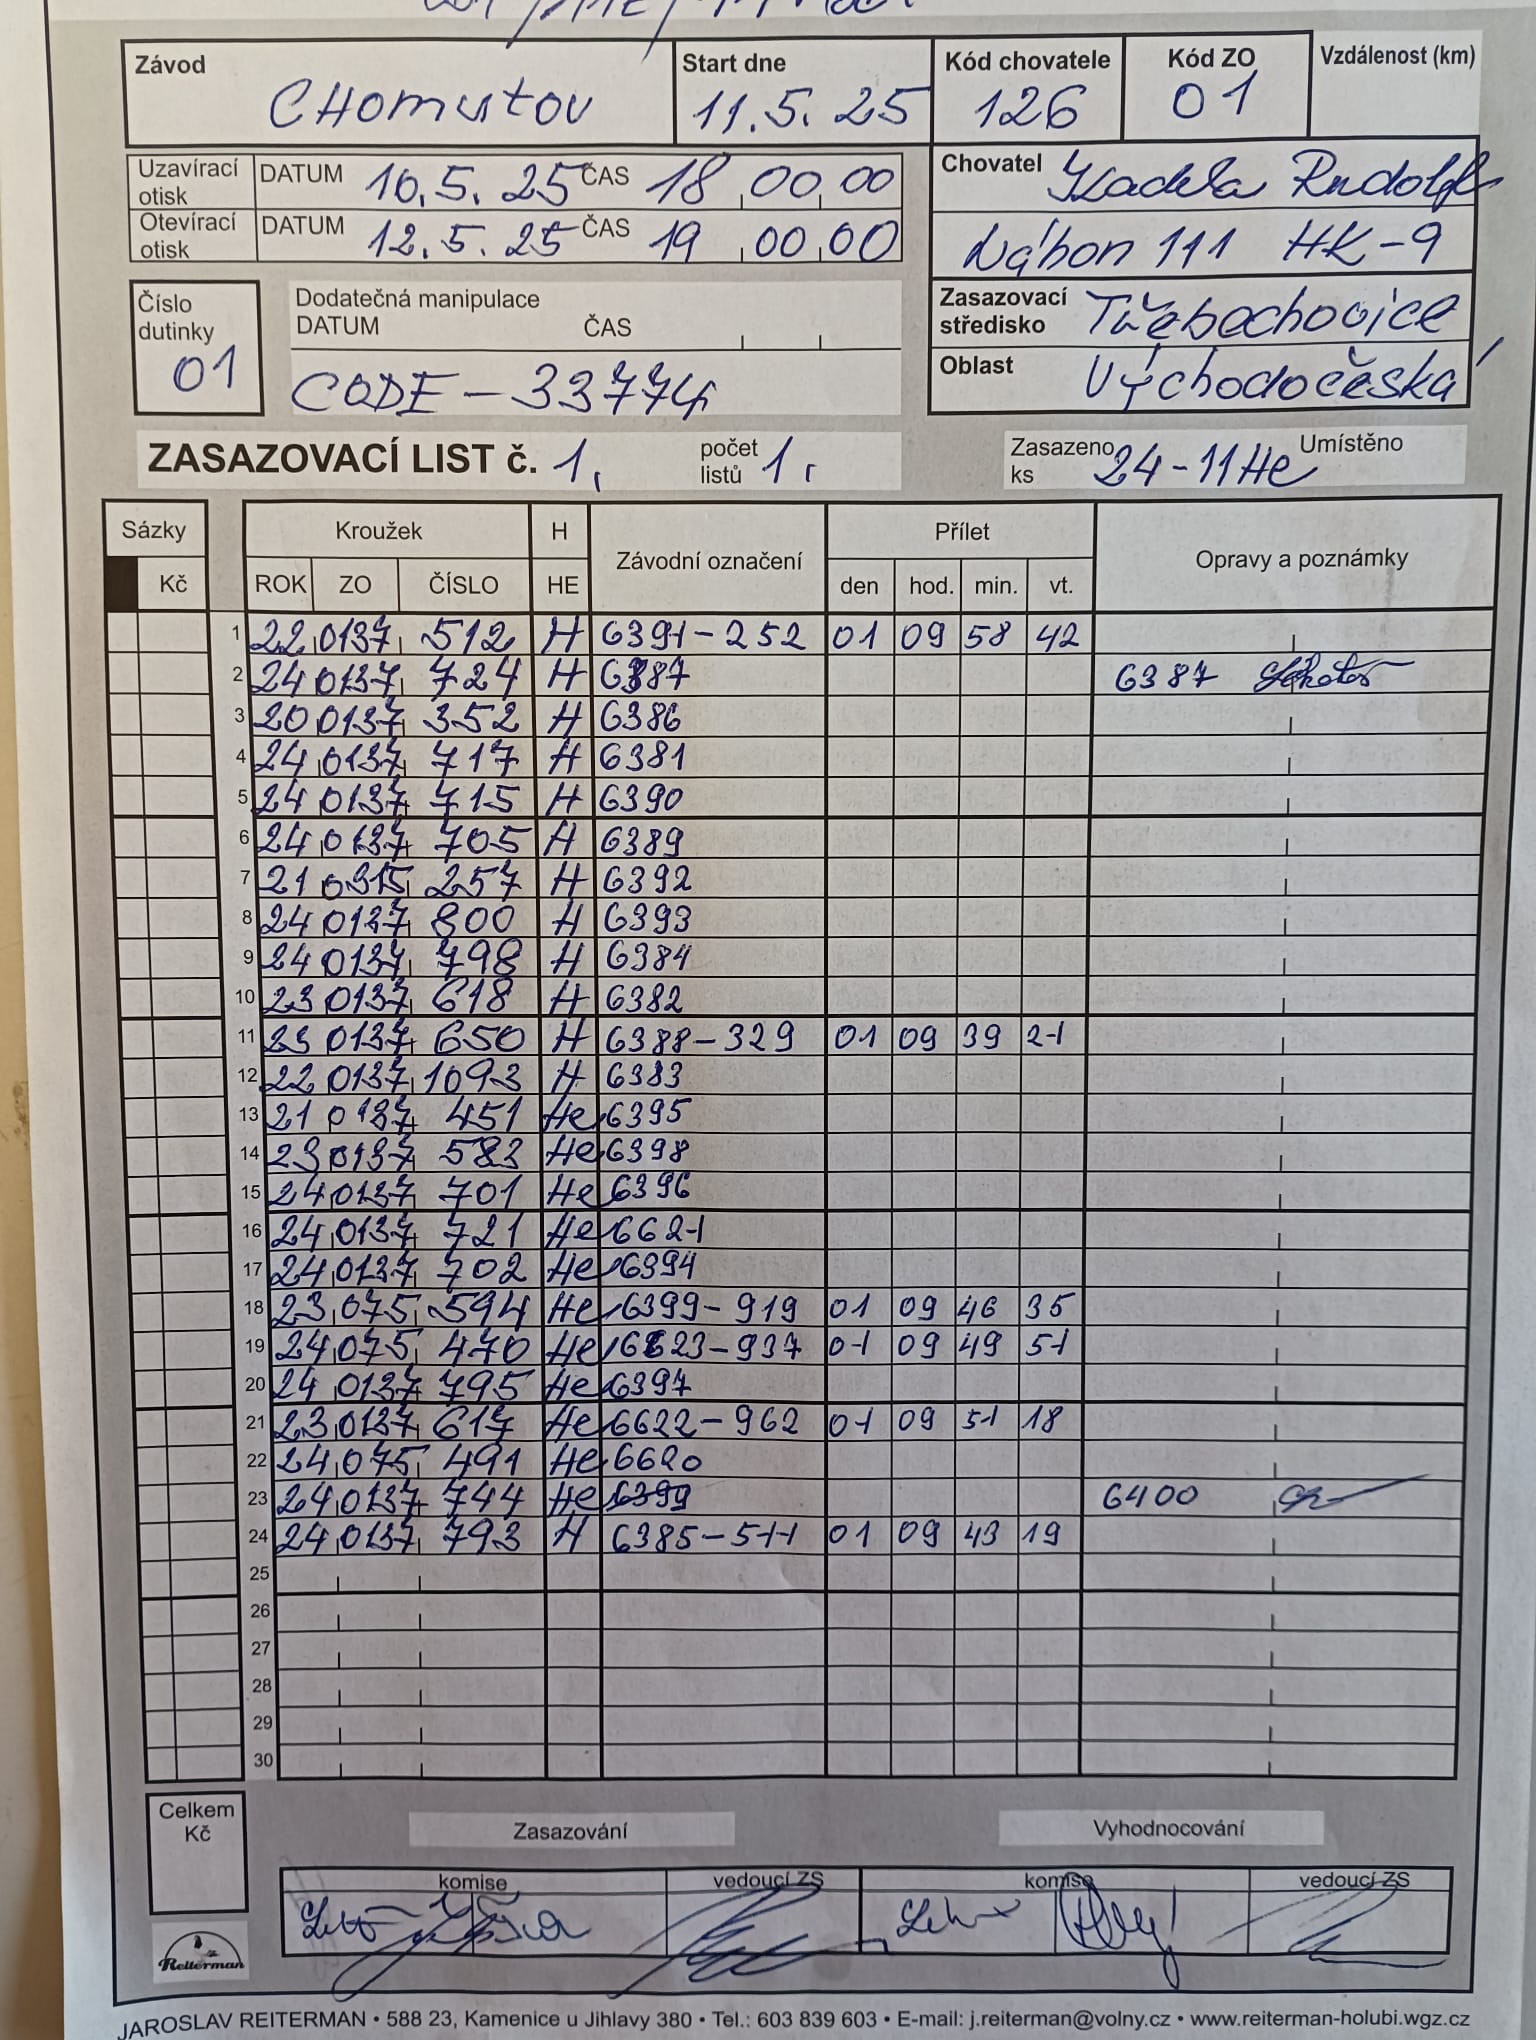 Závod Start dne Kód chovatele Kód ZO Vzdálenost (km)
CHomutov 11.5.25 126 01
Uzavírací otisk DATUM 10.5.25 ČAS 18 00 00
Otevírací otisk DATUM 12.5.25 ČAS 19 00 00
Chovatel Rudolf
Náhon 111 HK-9
Číslo dutinky 01
Dodatečná manipulace
DATUM ČAS
CODE-33774
Zasazovací středisko Třebechovice
Oblast Východočeská
ZASAZOVACÍ LIST č. 1. počet listů 1. Zasazeno ks 24-11He Umístěno
Sázky Kroužek H Závodní označení Přílet Opravy a poznámky
Kč ROK ZO ČÍSLO HE den hod. min. vt.
1 22 0137 512 H 6391-252 01 09 58 42
2 24 0137 724 H 6387 6387
3 20 0137 352 H 6386
4 24 0137 717 H 6381
5 24 0137 715 H 6390
6 24 0137 705 H 6389
7 21 0315 257 H 6392
8 24 0137 800 H 6393
9 24 0137 798 H 6384
10 23 0137 618 H 6382
11 23 0137 650 H 6388-329 01 09 39 21
12 22 0137 1093 H 6383
13 21 0137 451 He 6395
14 23 0137 583 He 6398
15 24 0137 701 He 6396
16 24 0137 721 He 6621
17 24 0137 702 He 6394
18 23 075 594 He 6399-919 01 09 46 35
19 24 075 470 He 6623-937 01 09 49 51
20 24 0137 795 He 6397
21 23 0137 617 He 6622-962 01 09 51 18
22 24 075 491 He 6620
23 24 0137 744 He 6399 6400
24 24 0137 793 H 6385-511 01 09 43 19
25
26
27
28
29
30
Celkem Kč
Zasazování Vyhodnocování
komise vedoucí ZS komise vedoucí ZS
Reiterman
JAROSLAV REITERMAN • 588 23, Kamenice u Jihlavy 380 • Tel.: 603 839 603 • E-mail: j.reiterman@volny.cz • www.reiterman-holubi.wgz.cz